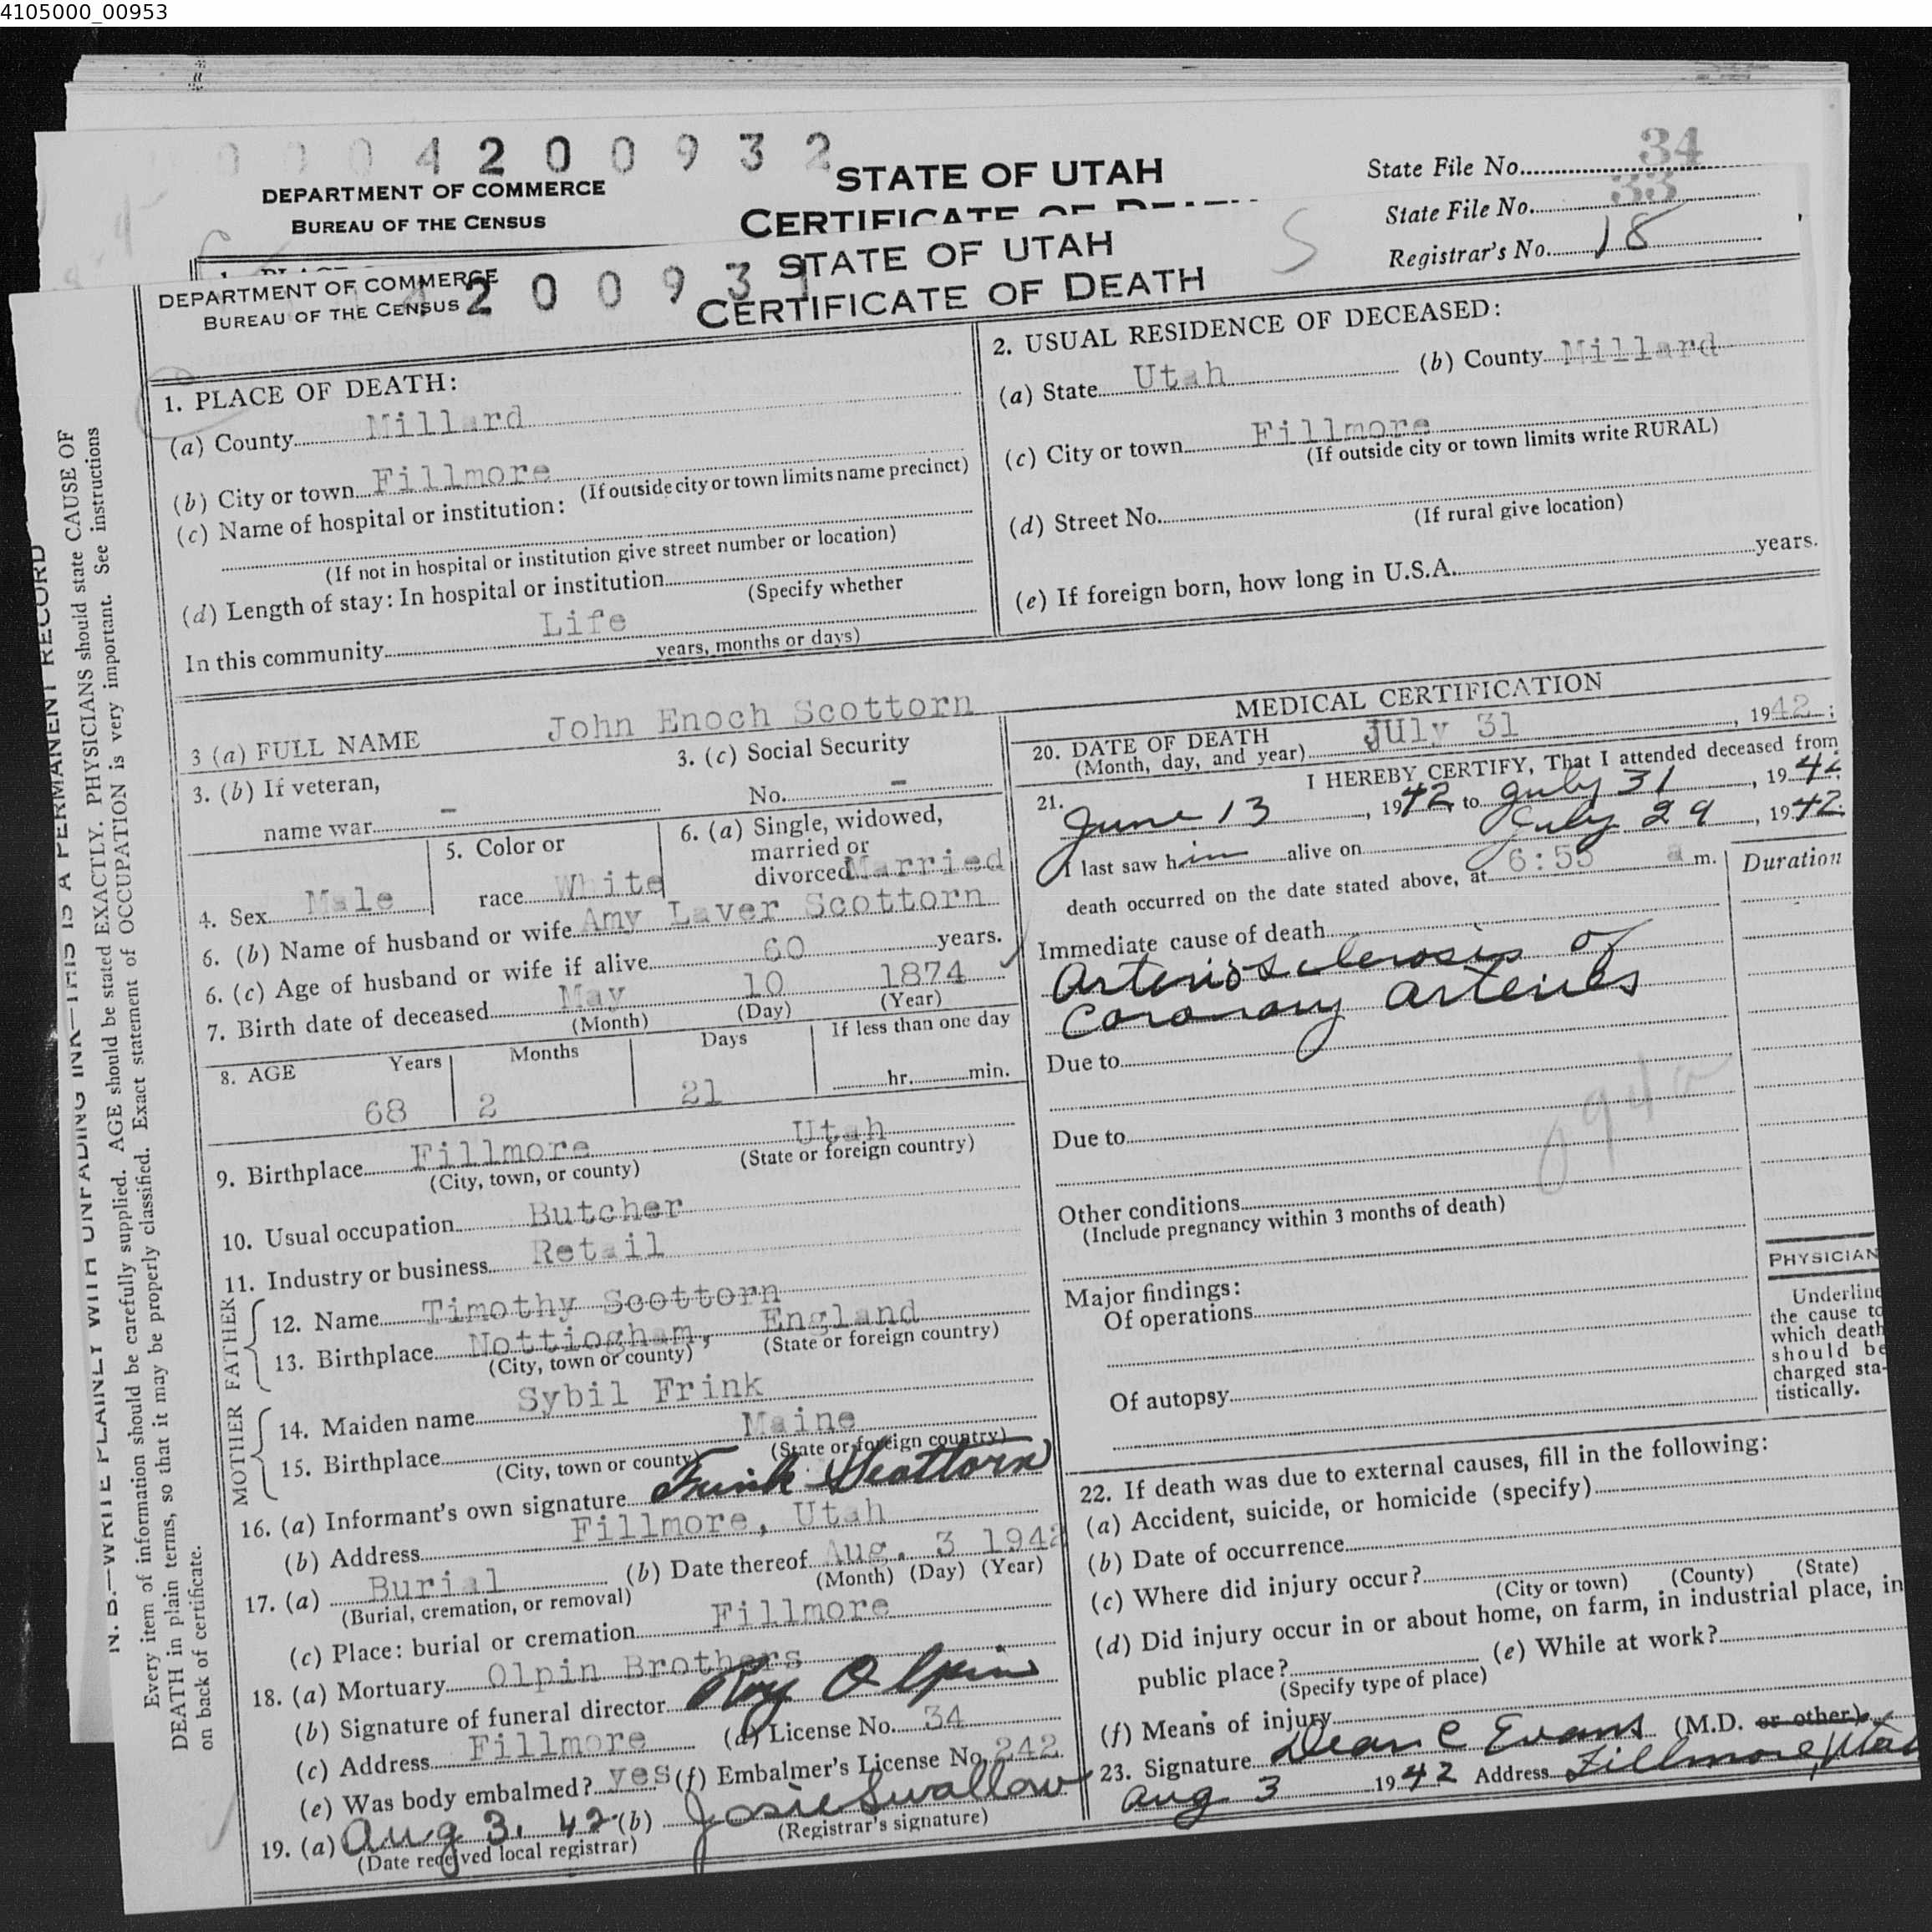 4105000_00953
0004200932
DEPARTMENT OF COMMERCE
BUREAU OF THE CENSUS
STATE OF UTAH
CERTIFICATE OF
State File No. 34
State File No. 33
Registrar's No. 18
S
DEPARTMENT OF COMMERCE
BUREAU OF THE CENSUS
4200931
STATE OF UTAH
CERTIFICATE OF DEATH
N. B.—WRITE PLAINLY WITH UNFADING INK—THIS IS A PERMANENT RECORD
Every item of information should be carefully supplied. AGE should be stated EXACTLY. PHYSICIANS should state CAUSE OF
DEATH in plain terms, so that it may be properly classified. Exact statement of OCCUPATION is very important. See instructions
on back of certificate.
1. PLACE OF DEATH:
(a) County Millard
(b) City or town Fillmore
(If outside city or town limits name precinct)
(c) Name of hospital or institution:
(If not in hospital or institution give street number or location)
(d) Length of stay: In hospital or institution
(Specify whether
In this community Life
years, months or days)
2. USUAL RESIDENCE OF DECEASED:
(a) State Utah (b) County Millard
(c) City or town Fillmore
(If outside city or town limits write RURAL)
(d) Street No.
(If rural give location)
(e) If foreign born, how long in U.S.A. years.
3 (a) FULL NAME John Enoch Scottorn
3. (b) If veteran,
name war -
3. (c) Social Security
No. -
4. Sex Male
5. Color or
race White
6. (a) Single, widowed,
married or
divorced Married
6. (b) Name of husband or wife Amy Laver Scottorn
6. (c) Age of husband or wife if alive 60 years.
7. Birth date of deceased May 10 1874
(Month) (Day) (Year)
8. AGE Years Months Days If less than one day
68 2 21 hr. min.
9. Birthplace Fillmore Utah
(City, town, or county) (State or foreign country)
10. Usual occupation Butcher
11. Industry or business Retail
FATHER
12. Name Timothy Scottorn
13. Birthplace Nottiogham, England
(City, town or county) (State or foreign country)
MOTHER
14. Maiden name Sybil Frink
15. Birthplace Maine
(City, town or county) (State or foreign country)
16. (a) Informant's own signature Frink Scottorn
(b) Address Fillmore, Utah
17. (a) Burial (b) Date thereof Aug. 3 1942
(Burial, cremation, or removal) (Month) (Day) (Year)
(c) Place: burial or cremation Fillmore
18. (a) Mortuary Olpin Brothers
(b) Signature of funeral director Roy Olpin
(c) Address Fillmore (d) License No. 34
(e) Was body embalmed? yes (f) Embalmer's License No. 242
19. (a) Aug 3. 42 (b) Josie Swallow
(Date received local registrar) (Registrar's signature)
MEDICAL CERTIFICATION
20. DATE OF DEATH
(Month, day, and year) JUly 31, 1942;
21. I HEREBY CERTIFY, That I attended deceased from
June 13, 1942 to July 31, 1942;
I last saw him alive on July 29, 1942.
death occurred on the date stated above, at 6:55 a m.
Duration
Immediate cause of death
Arteriosclerosis of
Coronary arteries
Due to
094a
Due to
Other conditions
(Include pregnancy within 3 months of death)
Major findings:
Of operations
Of autopsy
PHYSICIAN
Underline
the cause to
which death
should be
charged sta-
tistically.
22. If death was due to external causes, fill in the following:
(a) Accident, suicide, or homicide (specify)
(b) Date of occurrence
(c) Where did injury occur?
(City or town) (County) (State)
(d) Did injury occur in or about home, on farm, in industrial place, in
public place? (e) While at work?
(Specify type of place)
(f) Means of injury
23. Signature Dean C Evans (M.D. or other)
Aug 3 1942 Address Fillmore, Utah